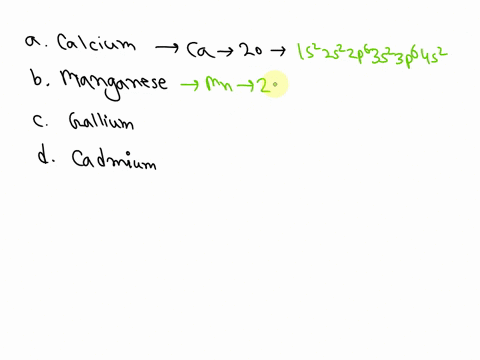 a. Calcium → Ca → 20 → 1s²2s²2p⁶3s²3p⁶4s²
b. Manganese → Mn → 2
c. Gallium
d. Cadmium